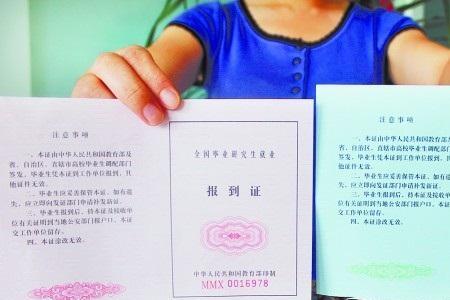 注意事项
一、本证由中华人民共和国教育部及
省、自治区、直辖市高校毕业生调配部门
签发，毕业生凭本证到工作单位报到，其
他证件无效。
二、毕业生应妥善保管本证，如有遗
失，应立即向发证部门申请补发新证。
三、毕业生报到后，持本证及接收单
位有关证明到当地公安部门报户口，本证
交工作单位留存。
四、本证涂改无效。
全国毕业研究生就业
报到证
中华人民共和国教育部印制
MMX 0016978
注意事项
一、本证由中华人民共和国教育部
省、自治区、直辖市高校毕业生调配部门
签发，毕业生凭本证到工作单位报到，其
他证件无效。
二、毕业生应妥善保管本证，如有遗
失，应立即向发证部门申请补发新证。
三、毕业生报到后，持本证及接收单
位有关证明到当地公安部门报户口，本证
交工作单位留存。
四、本证涂改无效。